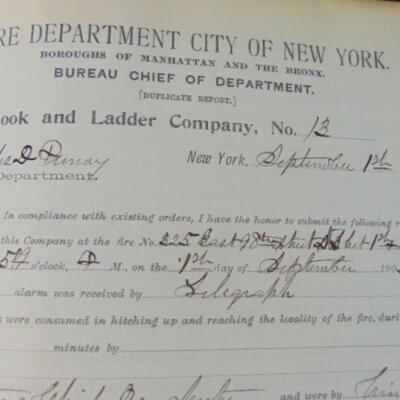 RE DEPARTMENT CITY OF NEW YORK.
BOROUGHS OF MANHATTAN AND THE BRONX.
BUREAU CHIEF OF DEPARTMENT.
[DUPLICATE REPORT.]
ook and Ladder Company, No. 13
New York, September 1st
Department.
In compliance with existing orders, I have the honor to submit the following r
this Company at the fire No. 225 East 98th Street
o'clock, P M., on the 1st day of September 190
alarm was received by Telegraph
s were consumed in hitching up and reaching the locality of the fire, duri
minutes by
and were by